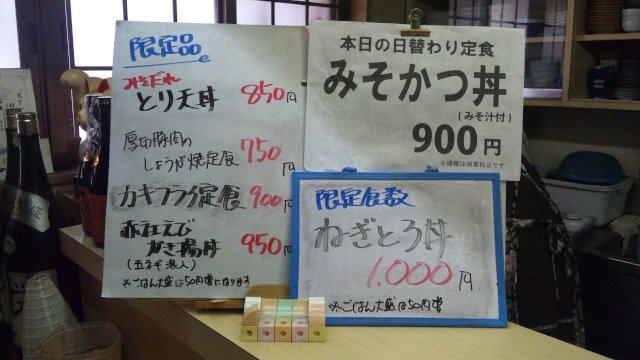 限定品
みそだれ
とり天丼 850円
厚切豚肉の
しょうが焼定食 750円
カキフライ定食 900円
赤エビ
かき揚丼 950円
(玉ネギ混入)
※ごはん大盛は50円増になります
本日の日替わり定食
みそかつ丼
(みそ汁付)
900円
※価格は消費税込です
限定食数
ねぎとろ丼
1,000円
※ごはん大盛は50円増